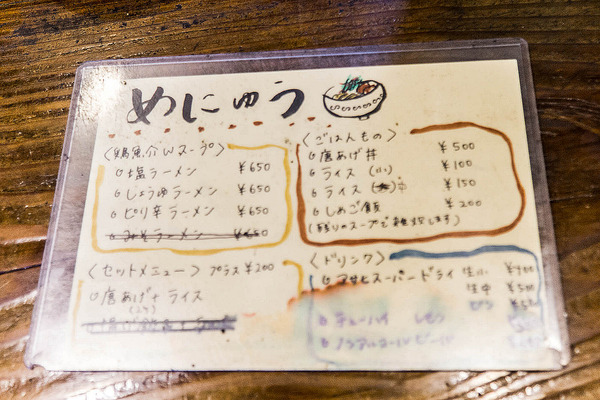 めにゅう
〈鶏魚介Wスープ〉
塩ラーメン ¥650
しょうゆラーメン ¥650
ピリ辛ラーメン ¥650
みそラーメン ¥650
〈セットメニュー〉 プラス¥200
唐あげ+ライス
(2ケ)
〈ごはんもの〉
唐あげ丼 ¥500
ライス (小) ¥100
ライス 中 ¥150
しめご飯 ¥200
(残りのスープで雑炊します)
〈ドリンク〉
アサヒスーパードライ 生小
生中 ¥500
ビン
チューハイ レモン
ノンアルコールビール